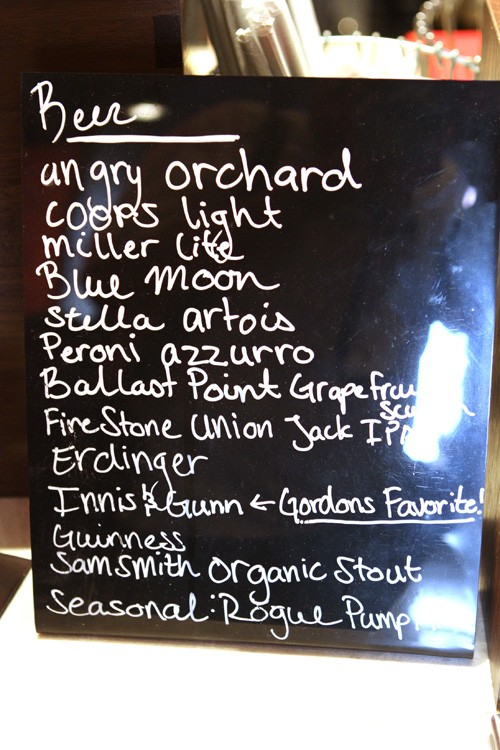 Beer
angry orchard
coors light
miller lite
Blue Moon
stella artois
Peroni azzurro
Ballast Point Grapefruit
sculpin
FireStone Union Jack IPA
Erdinger
Innis & Gunn ← Gordons Favorite!
Guinness
SamSmith Organic Stout
Seasonal: Rogue Pump